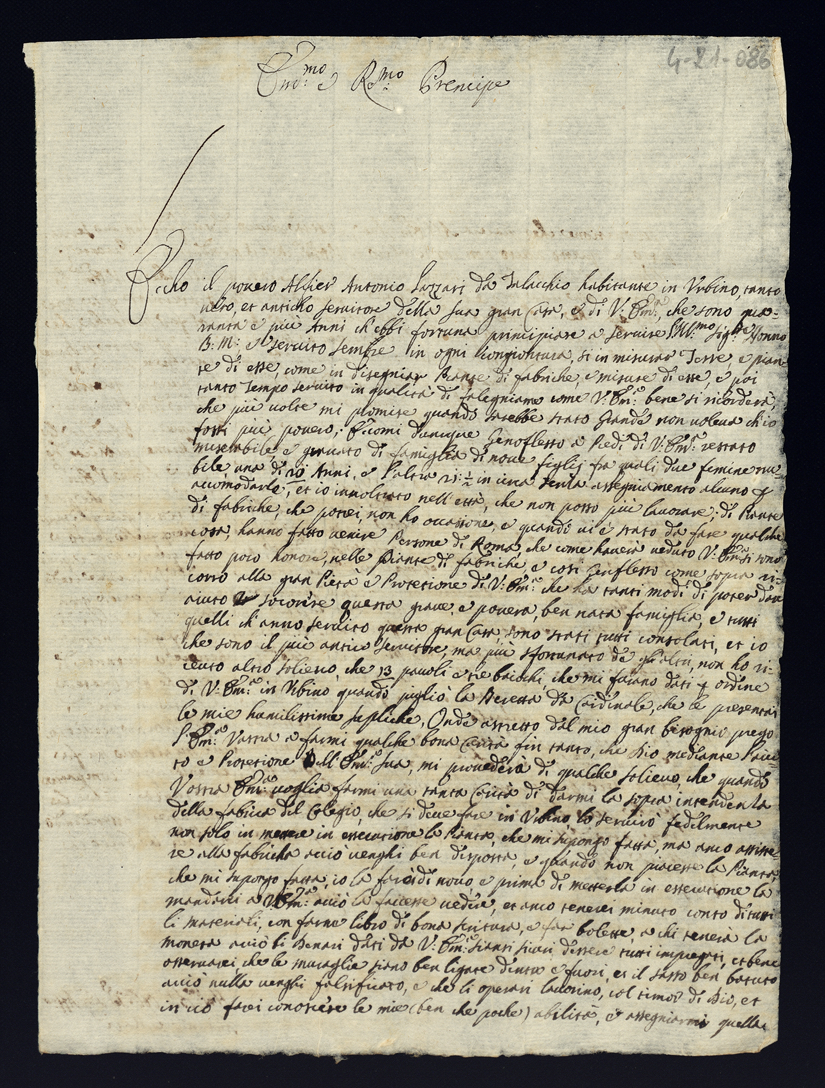 4-21-086
Em:mo e R:mo Prencipe
Eccho il povero Alfier Antonio Lazzari da Talacchio habitante in Urbino, tanto
vero, et anticho servitore della sua gran Casa, e di V: Em:a, che sono qua-
ranta e più Anni ch'ebbi fortuna principiare a servire Sig:re Nonno
B: M: e servito sempre in ogni congiontura, si in misurar Terre, e pian-
te di esse, come in disegniar Piante di fabriche, e misure di esse, e poi
tanto Tempo servito in qualità di falegniame come V: Em:a bene si ricorderà,
che più volte mi promise quando sarebbe stato Grande non voleva ch'io
fossi più povero; Eccomi dunque Genoflesso a Piedi di V: Em:a restato
miserabile, e gravato di famiglia di nove figlij fra quali due femine nu-
bile, una di 20 Anni, e l'altra 21 in circa senza assegniamento alcuno p
accomodarle, et io innoltrato nell'età, che non posso più lavorare; di Piante
di fabriche, che potrei, non ho occasione, e quando vi è stato da fare qualche
cosa, hanno fatto venire Persone di Roma, che come haverà veduto V: Em:a si sono
fatto poco honore, nelle Piante di fabriche e così Genflesso come sopra ri-
corro alla gran Pietà e Protetione di V: Em:a che ha tanti modi di poter dar
aiuto socorere questa grave e povera, ben nata famiglia, e tutti
quelli ch'anno servito questa gran Casa, sono stati tutti consolati, et io
che sono il più antico servitore, ma più sfortunato de gli altri, non ho ri-
ceuto altro solievo, che 13 pavoli e tre baiochi che mi furno dati p ordine
di V: Em:a in Urbino quando pigliò la Beretta da Cardinale, che le presentai
le mie humilissime supliche, Onde astretto dal mio gran bisognio prego
l'Em:a Vostra a farmi qualche bona Carità fin tanto, che Dio mediante l'aiu-
to e Protetione dell'Em:a sua, mi provederà di qualche solievo, che quando
Vostra Em:a voglia farmi una tanta Carità di darmi la sopra intendenza
della fabrica del Colegio, che si deve fare in Urbino lo servirò fedilmente
non solo in mettere in essecutione la Pianta, che mi supongo fatta, ma anco assiste-
re alla fabricha acciò venghi ben disposta, e quando non piacesse la Pianta
che mi supongo fatta, io la farò di novo e prima di metterla in essecutione la
mandarei a V: Em:a acciò la facesse vedere, et anco tenerei minuto conto di tutti
li materiali, con farne libro di bona scritura, e far bolette, a chi tenerà la
moneta acciò li Denari dati da V: Em:a sianti sicuri d'essere tutti impiegati, et bene
osservarei che le muraglie siano ben ligate dentro e fuori, et il sasso ben batuto
acciò nulla venghi falsificato, e che li operari lavorino, col timor di Dio, et
in ciò farei conoscere le mie (ben che poche) abilità, e assegniarmi quella